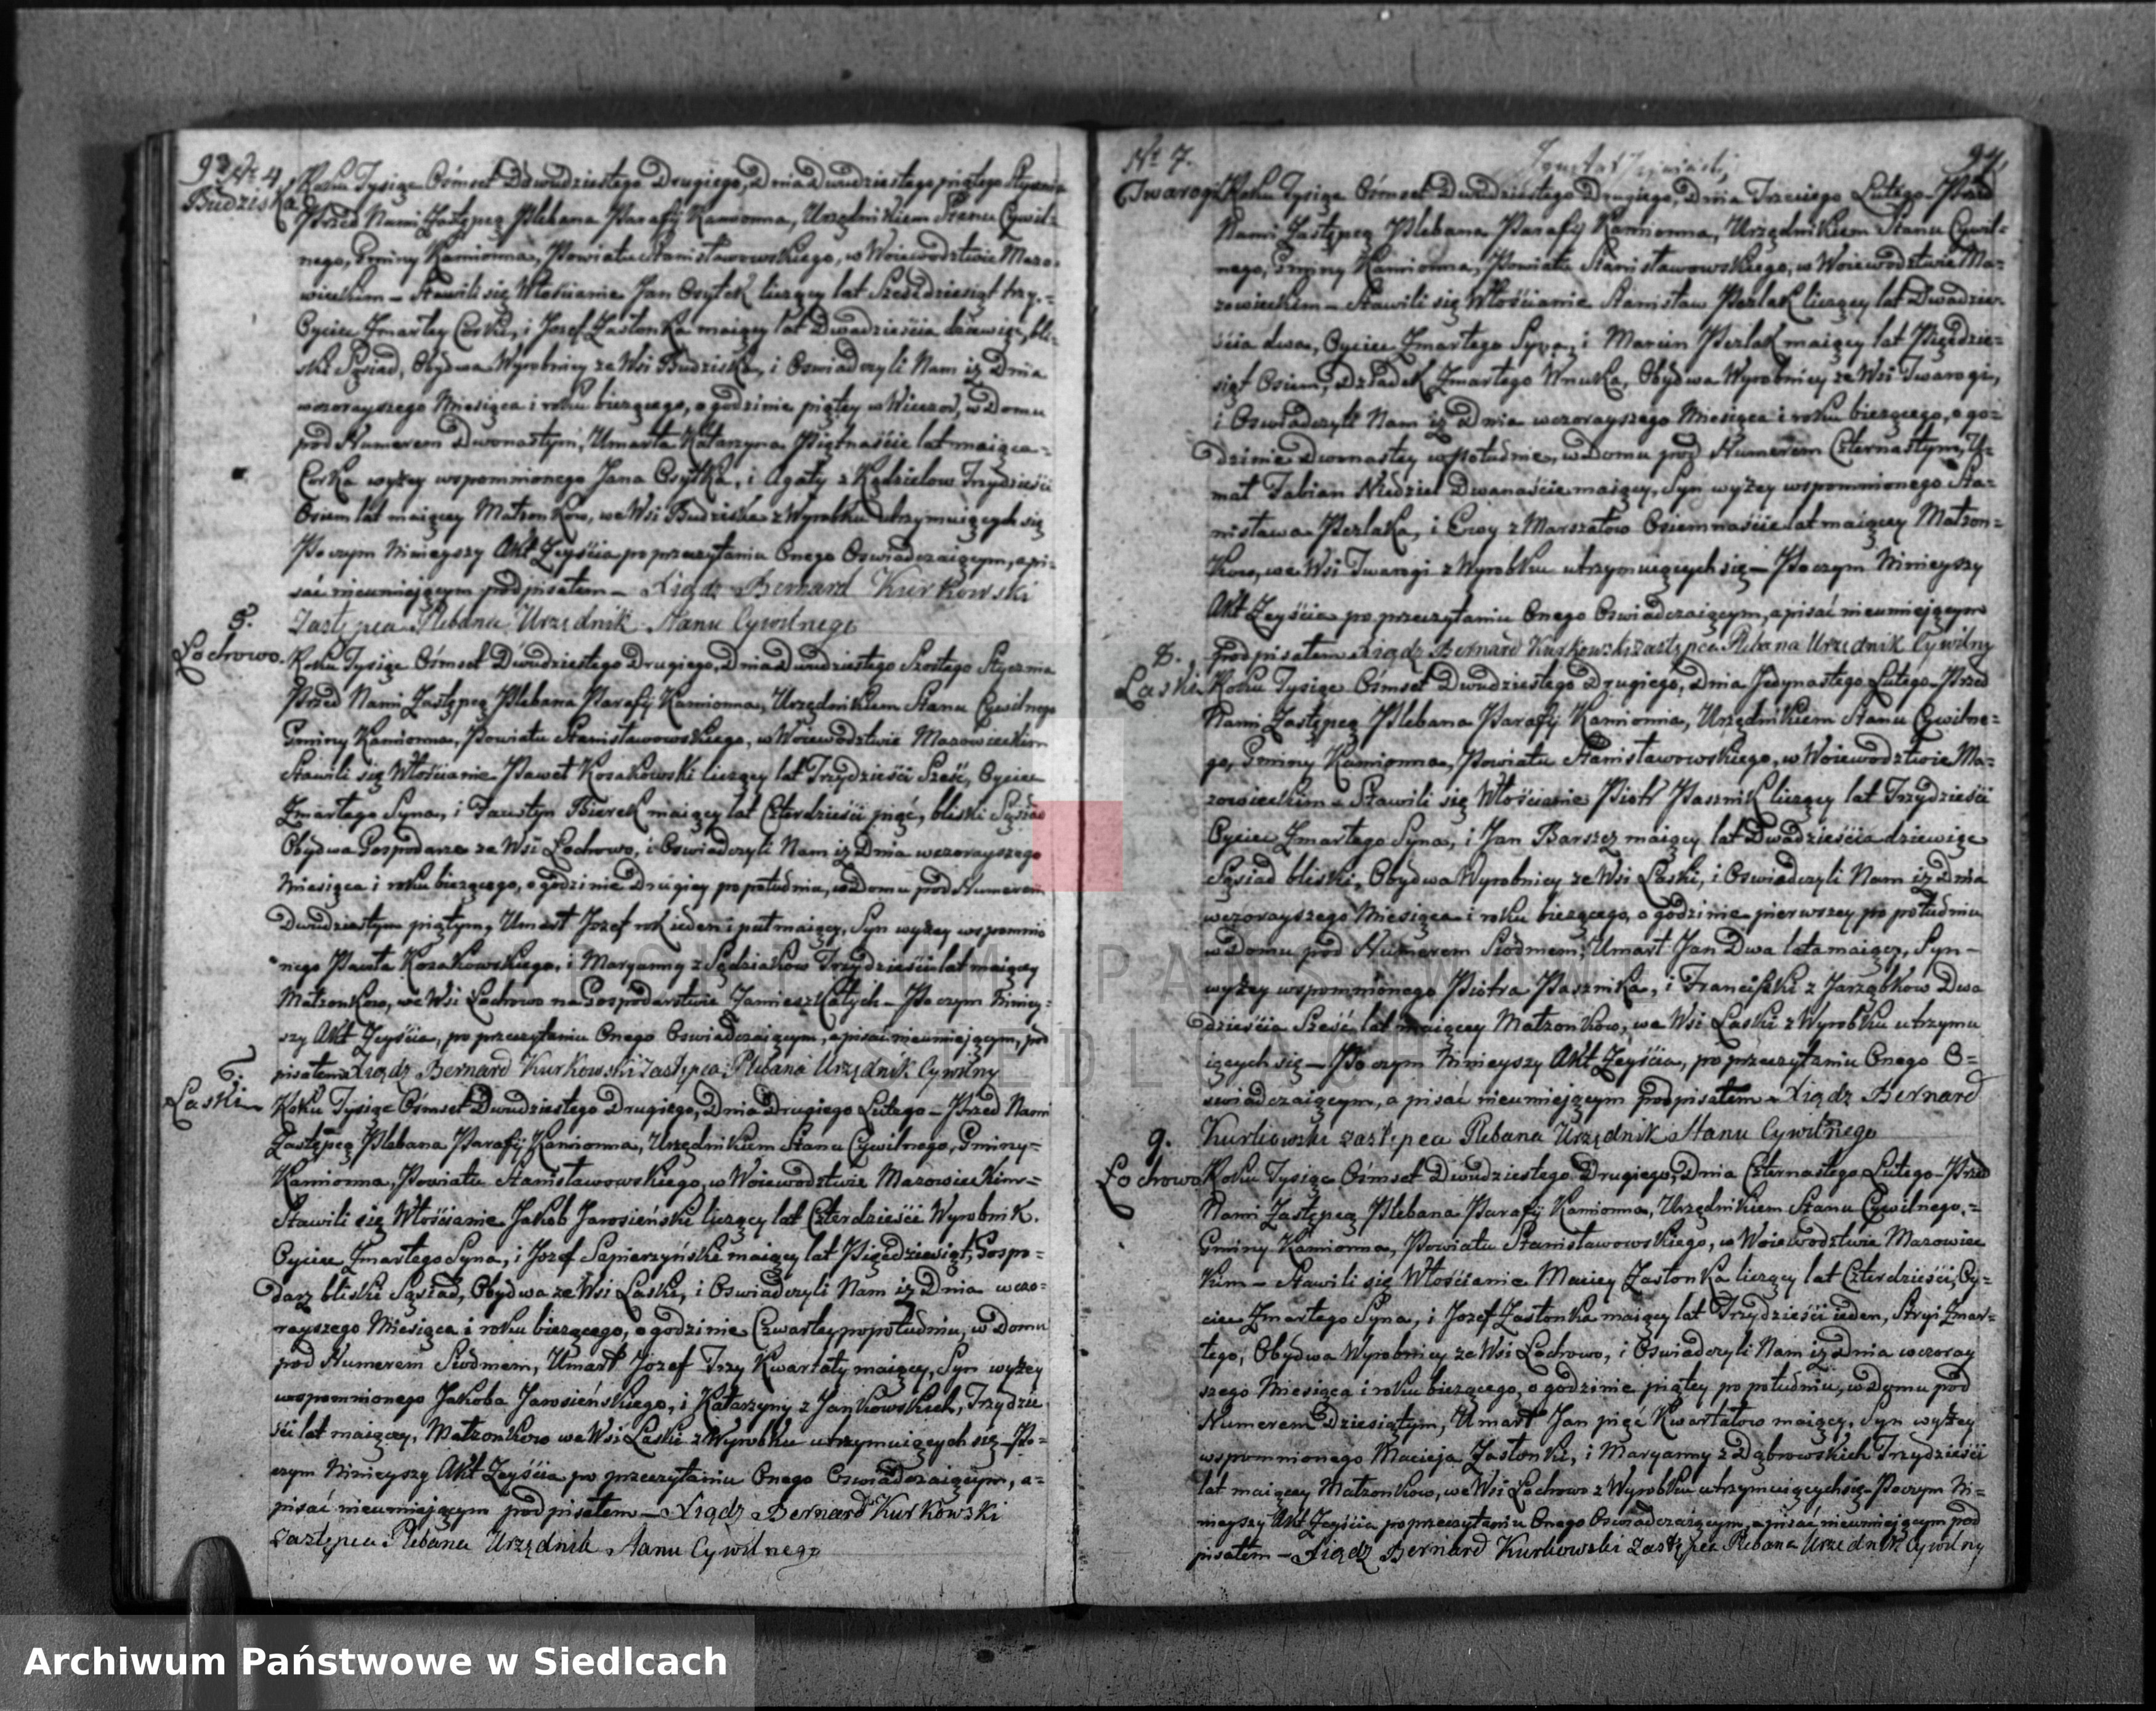 93
No 4
Budziska
Roku Tysiąc Ośmset Dwudziestego Drugiego, Dnia Dwudziestego piątego Stycznia
Przed Nami Zastępcą Plebana Parafij Kamionna, Urzędnikiem Stanu Cywil-
nego, Gminy Kamionna, Powiatu Stanisławowskiego, w Woiewodztwie Mazo-
wieckim – Stawili się Włościanie Jan Osytek liczący lat Sześćdziesiąt trzy,
Oyciec Zmarłey Corki, i Jozef Zasłonka maiący lat Dwadzieścia dziewięć, bli-
ski Sąsiad, Obydwa Wyrobnicy ze Wsi Budziska, i Oswiadczyli Nam iż Dnia
wczorayszego Miesiąca i roku bieżącego, o godzinie piątey w Wieczor, w Domu
pod Numerem Dwonastym, Umarła Katarzyna Piętnaście lat maiąca-
Corka wyżey wspomnionego Jana Osytka, i Agaty z Kądzielow Trzydzieści
Osiem lat maiącey Małzonkow, we Wsi Budziska z Wyrobku utrzymuiących się
Poczym Ninieyszy Akt Zeyścia po przeczytaniu Onego Oswiadczaiącym, a pi-
sać nieumiejącym podpisałem – Xiądz Bernard Kurkowski
Zastępca Plebana Urzędnik Stanu Cywilnego
5.
Łochowo.
Roku Tysiąc Ośmset Dwudziestego Drugiego, Dnia Dwudziestego Szostego Stycznia
Przed Nami Zastępcą Plebana Parafij Kamionna, Urzędnikiem Stanu Cywilnego
Gminy Kamionna, Powiatu Stanisławowskiego, w Woiewodztwie Mazowieckim
Stawili się Włościanie Paweł Kozakowski liczący lat Trzydzieści Sześć, Oyciec
Zmarłego Syna, i Faustyn Bierek maiący lat Czterdzieści pięć, bliski Sąsiad
Obydwa Gospodarze ze Wsi Łochowo, i Oswiadczyli Nam iż Dnia wczorayszego
Miesiąca i roku bieżącego, o godzinie Drugiey po południu, w Domu pod Numerem
Dwudziestym piątym, Umarł Jozef rok ieden i puł maiący, Syn wyżey wspomnio
nego Pawła Kozakowskiego, i Maryanny z Sędziakow Trzydzieści lat maiącey
Małzonkow, we Wsi Łochowo na Gospodarstwie Zamieszkałych – Poczym Niniey-
szy Akt Zeyścia, po przeczytaniu Onego Oswiadczaiącym, a pisać nieumiejącym, pod
pisałem Xiądz Bernard Kurkowski Zastępca Plebana Urzędnik Cywilny
6.
Laski
Roku Tysiąc Ośmset Dwudziestego Drugiego, Dnia Drugiego Lutego – Przed Nami
Zastępcą Plebana Parafij Kamionna, Urzędnikiem Stanu Cywilnego, Gminy-
Kamionna, Powiatu Stanisławowskiego, w Woiewodztwie Mazowieckim-
Stawili się Włościanie Jakob Jarosieński liczący lat Czterdzieści Wyrobnik.
Oyciec Zmarłego Syna, i Jozef Sapierzyński maiący lat Pięćdziesiąt, Gospo-
darz bliski Sąsiad, Obydwa ze Wsi Laski, i Oswiadczyli Nam iż Dnia wczo-
rayszego Miesiąca i roku bieżącego, o godzinie Czwartey po południu, w Domu
pod Numerem Siodmem, Umarł Jozef Trzy Kwartały maiący, Syn wyżey
wspomnionego Jakoba Jarosieńskiego, i Katarzyny z Jankowskich, Trzydzie
ści lat maiącey, Małzonkow we Wsi Laski z Wyrobku utrzymuiących się – Po-
czym Ninieyszy Akt Zeyścia po przeczytaniu Onego Oswiadczaiącym, a-
pisać nieumiejącym podpisałem – Xiądz Bernard Kurkowski
Zastępca Plebana Urzędnik Stanu Cywilnego
No 7.
94.
Twarogi
Roku Tysiąc Ośmset Dwudziestego Drugiego, Dnia Trzeciego Lutego – Przed
Nami Zastępcą Plebana Parafij Kamionna, Urzędnikiem Stanu Cywil-
nego, Gminy Kamionna, Powiatu Stanisławowskiego, w Woiewodztwie Ma-
zowieckim – Stawili się Włościanie Stanisław Perlak liczący lat Dwadzie-
ścia dwa, Oyciec Zmarłego Syna, i Marcin Perlak maiący lat Pięćdzie-
siąt Osiem, Dziadek Zmarłego Wnuka, Obydwa Wyrobnicy ze Wsi Twarogi,
i Oswiadczyli Nam iż Dnia wczorayszego Miesiąca i roku bieżącego, o go-
dzinie Dwonastey w południe, w Domu pod Numerem Czternastym, U-
marł Fabian Niedziel Dwanaście maiący, Syn wyżey wspomnionego Sta-
nisława Perlaka, i Ewy z Marszałow Osiemnaście lat maiącey Małzon-
kow, we Wsi Twarogi z Wyrobku utrzymuiących się – Poczym Ninieyszy
Akt Zeyścia po przeczytaniu Onego Oswiadczaiącym, a pisać nieumiejącym
podpisałem Xiądz Bernard Kurkowski zastępca Plebana Urzędnik Cywilny
8.
Laski
Roku Tysiąc Ośmset Dwudziestego Drugiego, Dnia Jedynastego Lutego – Przed
Nami Zastępcą Plebana Parafij Kamionna, Urzędnikiem Stanu Cywilne-
go, Gminy Kamionna, Powiatu Stanisławowskiego, w Woiewodztwie Ma-
zowieckim – Stawili się Włościanie Piotr Pasznik liczący lat Trzydzieści
Oyciec Zmarłego Syna, i Jan Barszcz maiący lat Dwadzieścia dziewięć
Sąsiad bliski, Obydwa Wyrobnicy ze Wsi Laski, i Oswiadczyli Nam iż Dnia
wczorayszego Miesiąca i roku bieżącego, o godzinie pierwszey po południu
w Domu pod Numerem Siodmem, Umarł Jan Dwa lata maiący, Syn-
wyżey wspomnionego Piotra Pasznika, i Franciszki z Jarząbkow Dwa
dzieścia Sześć lat maiącey Małzonkow, we Wsi Laski z Wyrobku utrzymu
iących się – Poczym Ninieyszy Akt Zeyścia, po przeczytaniu Onego O-
swiadczaiącym, a pisać nieumiejącym podpisałem – Xiądz Bernard
Kurkowski zastępca Plebana Urzędnik Stanu Cywilnego
9.
Łochowo
Roku Tysiąc Ośmset Dwudziestego Drugiego, Dnia Czternastego Lutego – Przed
Nami Zastępcą Plebana Parafij Kamionna, Urzędnikiem Stanu Cywilnego,-
Gminy Kamionna, Powiatu Stanisławowskiego, w Woiewodztwie Mazowiec
kim – Stawili się Włościanie Maciey Zasłonka liczący lat Czterdzieści, Oy-
ciec Zmarłego Syna, i Jozef Zasłonka maiący lat Trzydzieści ieden, Stryi Zmar-
łego, Obydwa Wyrobnicy ze Wsi Łochowo, i Oswiadczyli Nam iż Dnia wczoray
szego Miesiąca i roku bieżącego, o godzinie piątey po południu, w Domu pod
Numerem Dziesiątym, Umarł Jan pięć Kwartałow maiący, Syn wyżey
wspomnionego Macieja Zasłonki, i Maryanny z Dąbrowskich Trzydzieści
lat maiącey Małzonkow, we Wsi Łochowo z Wyrobku utrzymuiących się – Poczym Ni-
nieyszy Akt Zeyścia po przeczytaniu Onego Oswiadczaiącym, a pisać nieumiejącym pod
pisałem – Xiądz Bernard Kurkowski Zastępca Plebana Urzędnik Cywilny
Archiwum Państwowe w Siedlcach